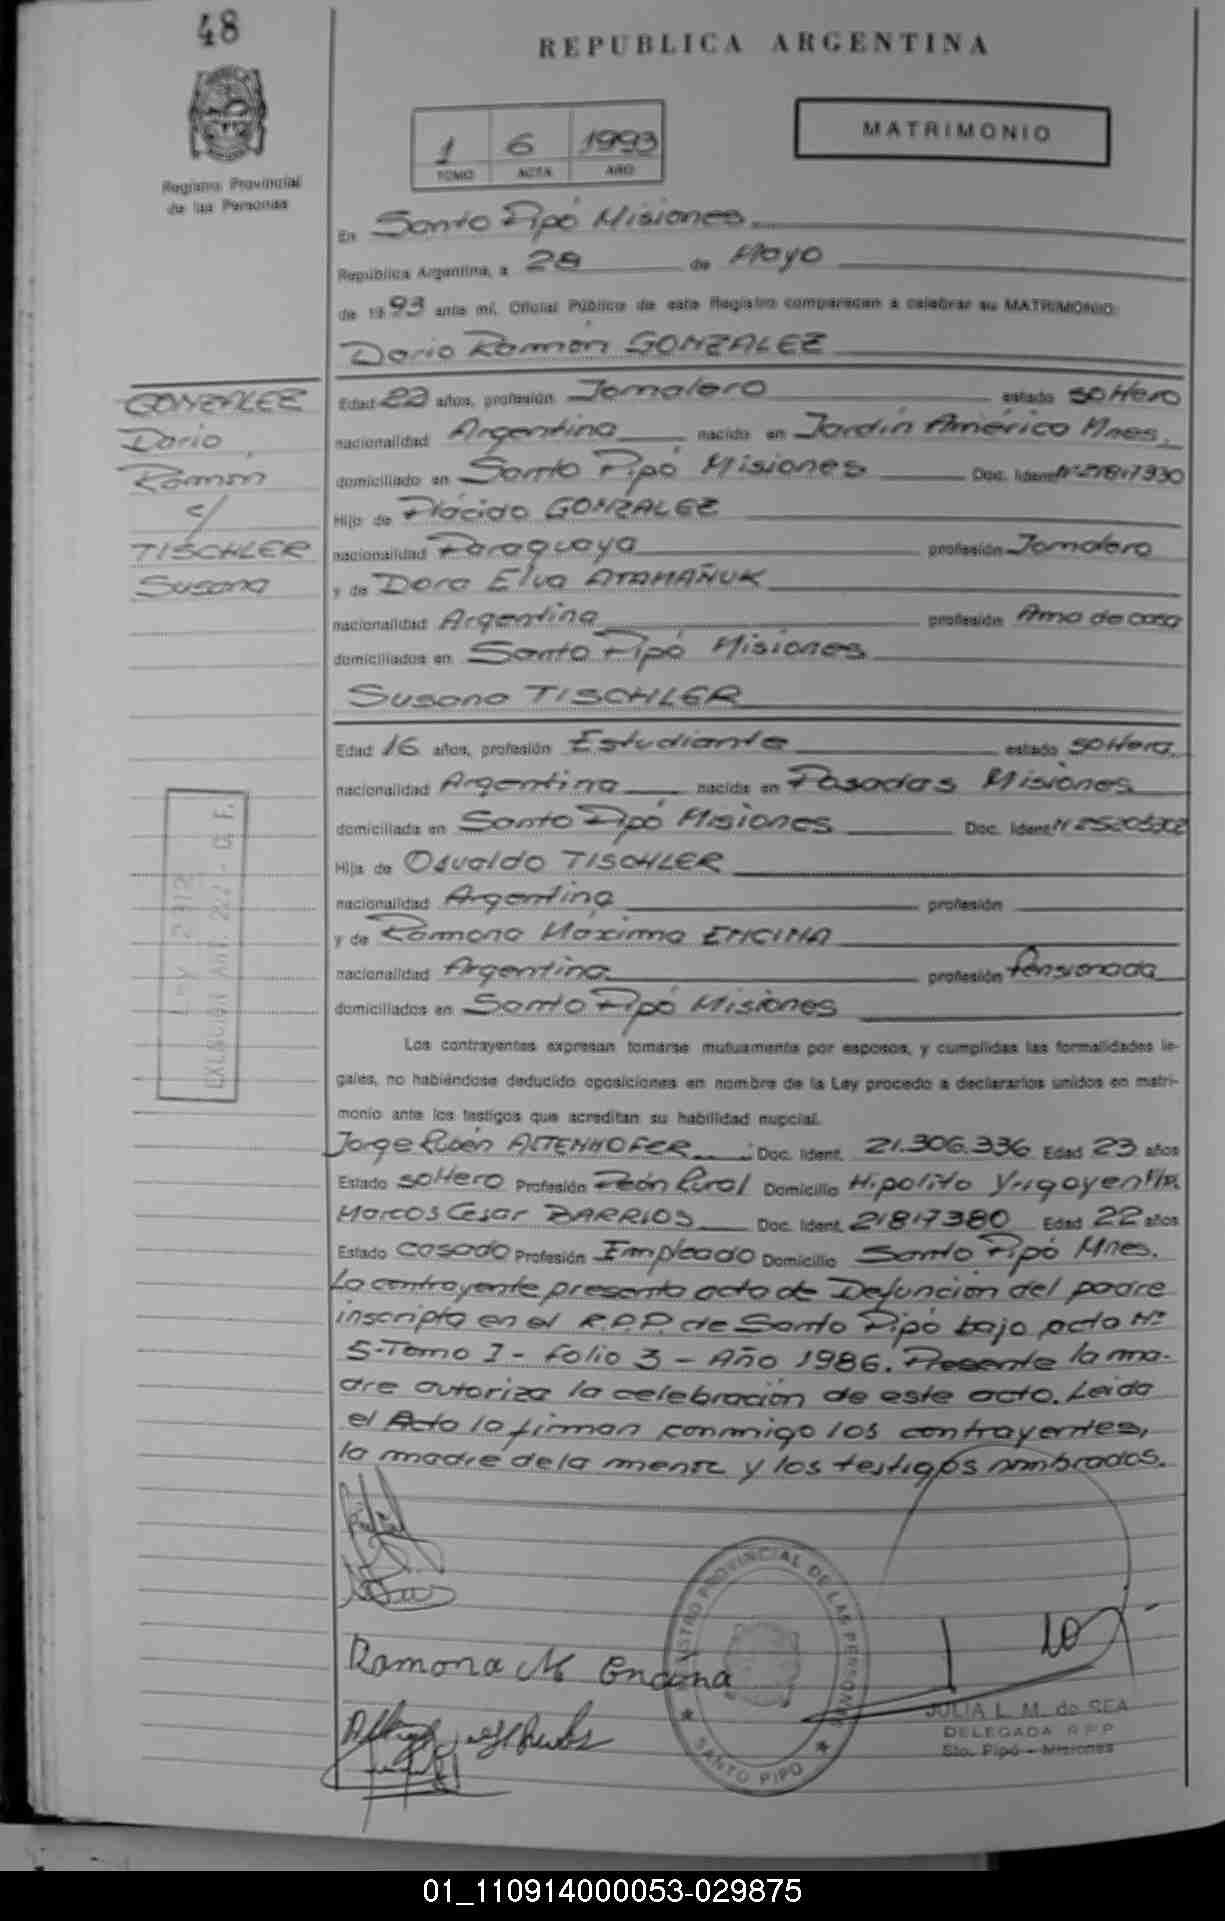 48
REPUBLICA ARGENTINA
Registro Provincial
de las Personas
1 6 1993
TOMO ACTA AÑO
MATRIMONIO
En Santo Pipó Misiones
República Argentina, a 28 de Mayo
de 1993 ante mí, Oficial Público de este Registro comparecen a celebrar su MATRIMONIO:
Dario Ramón GONZALEZ
GONZALEZ
Dario
Ramón
c/
TISCHLER
Susana
Edad 22 años, profesión Jornalero estado soltero
nacionalidad Argentina nacido en Jardín América Mnes.
domiciliado en Santo Pipó Misiones Doc. Ident. Nº 21817330
Hijo de Plácido GONZALEZ
nacionalidad Paraguaya profesión Jornalero
y de Dora Elva ATAMAÑUK
nacionalidad Argentina profesión Ama de casa
domiciliados en Santo Pipó Misiones
Susana TISCHLER
Edad 16 años, profesión Estudiante estado soltera
nacionalidad Argentina nacida en Posadas Misiones
domiciliada en Santo Pipó Misiones Doc. Ident.
Hija de Osvaldo TISCHLER
nacionalidad Argentina profesión
y de Ramona Máxima ENCINA
nacionalidad Argentina profesión Pensionada
domiciliados en Santo Pipó Misiones
Los contrayentes expresan tomarse mutuamente por esposos, y cumplidas las formalidades le-
gales, no habiéndose deducido oposiciones en nombre de la Ley procedo a declararlos unidos en matri-
monio ante los testigos que acreditan su habilidad nupcial.
Jorge Rubén ALTENHOFER Doc. Ident. 21.306.336 Edad 23 años
Estado soltero Profesión Peón Rural Domicilio Hipolito Yrigoyen
Marcos Cesar BARRIOS Doc. Ident. 21817380 Edad 22 años
Estado casado Profesión Empleado Domicilio Santo Pipó Mnes.
La contrayente presenta acta de Defunción del padre
inscripta en el R.P.P. de Santo Pipó bajo acta Nº
5-Tomo I - Folio 3 - Año 1986. Presente la ma-
dre autoriza la celebración de este acto. Leida
el Acta la firman conmigo los contrayentes,
la madre de la menor y los testigos nombrados.
LEY 2312
EXENCION Art. 222 - C. F.
Ramona M Encina
REGISTRO PROVINCIAL DE LAS PERSONAS
SANTO PIPO
JULIA L. M. de SEA
DELEGADA R.P.P.
Sto. Pipó - Misiones
01_110914000053-029875